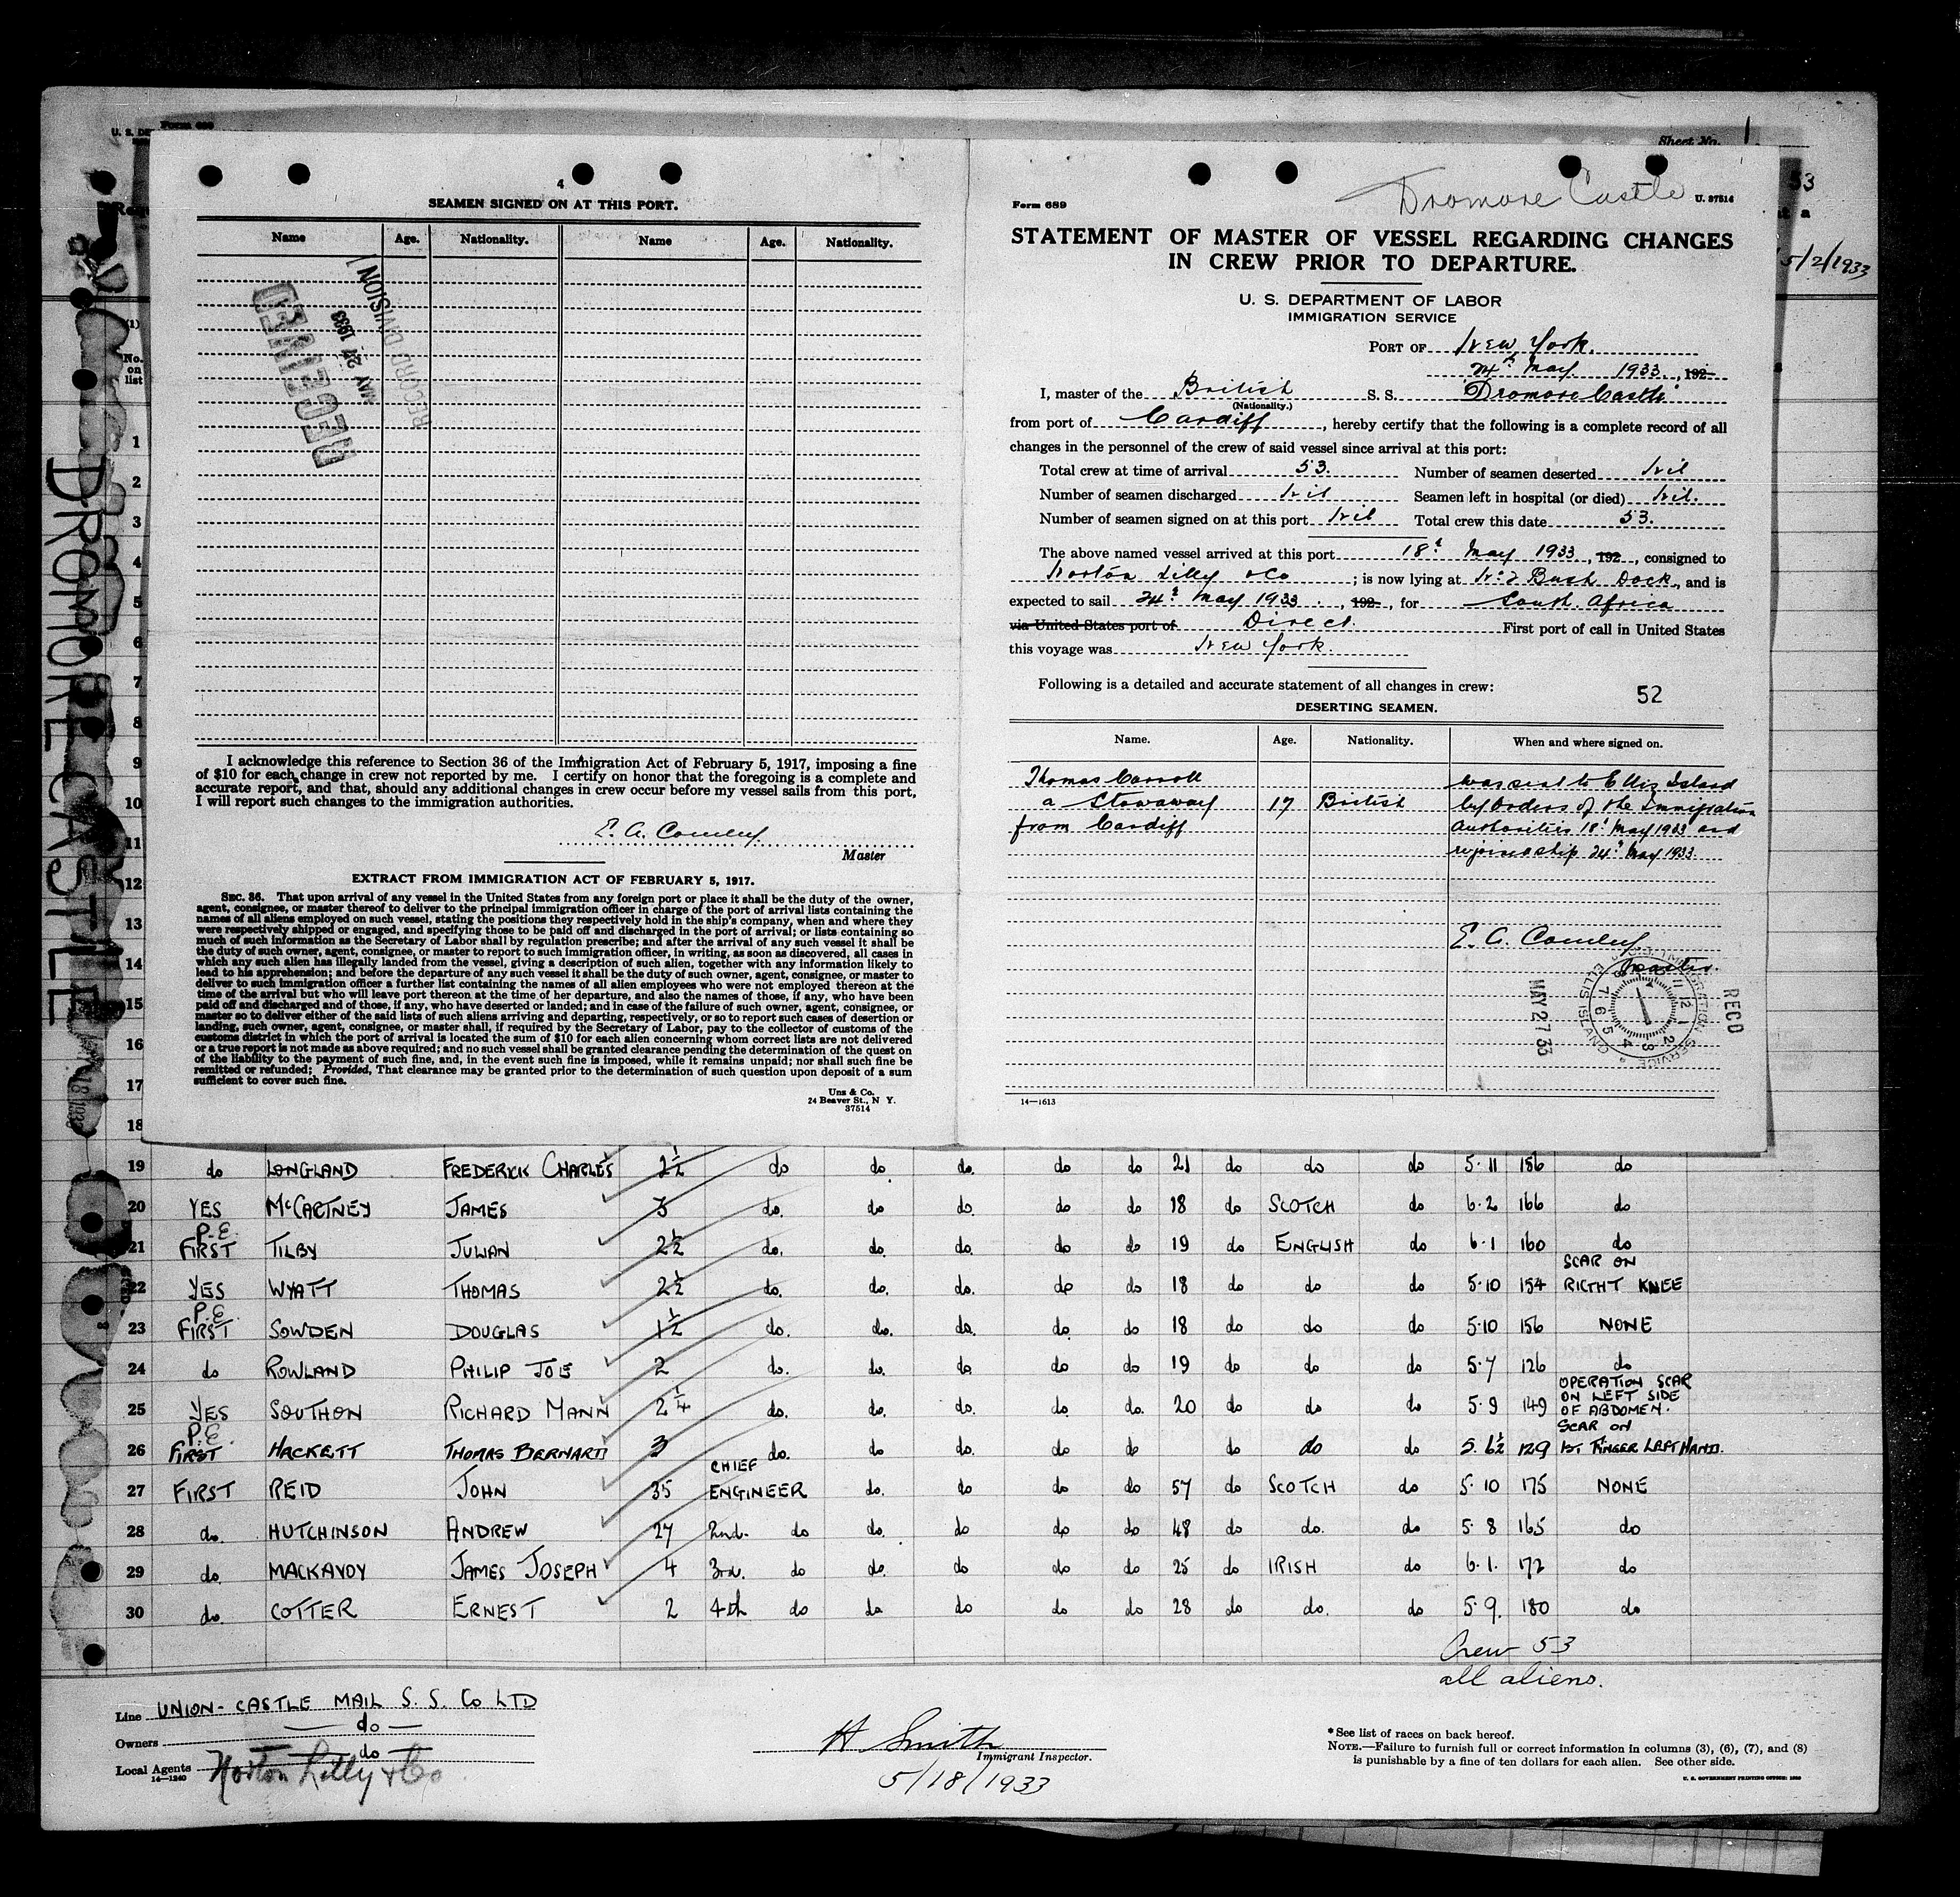 DROMORE CASTLE
Form 689
U. S. DE
Sheet No. 1
53
5/2/1933
4
SEAMEN SIGNED ON AT THIS PORT.
Name Age. Nationality. Name Age. Nationality.
RECEIVED
MAY 27 1933
RECORD DIVISION
I acknowledge this reference to Section 36 of the Immigration Act of February 5, 1917, imposing a fine
of $10 for each change in crew not reported by me. I certify on honor that the foregoing is a complete and
accurate report, and that, should any additional changes in crew occur before my vessel sails from this port,
I will report such changes to the immigration authorities.
Master
EXTRACT FROM IMMIGRATION ACT OF FEBRUARY 5, 1917.
SEC. 36. That upon arrival of any vessel in the United States from any foreign port or place it shall be the duty of the owner,
agent, consignee, or master thereof to deliver to the principal immigration officer in charge of the port of arrival lists containing the
names of all aliens employed on such vessel, stating the positions they respectively hold in the ship's company, when and where they
were respectively shipped or engaged, and specifying those to be paid off and discharged in the port of arrival; or lists containing so
much of such information as the Secretary of Labor shall by regulation prescribe; and after the arrival of any such vessel it shall be
the duty of such owner, agent, consignee, or master to report to such immigration officer, in writing, as soon as discovered, all cases in
which any such alien has illegally landed from the vessel, giving a description of such alien, together with any information likely to
lead to his apprehension; and before the departure of any such vessel it shall be the duty of such owner, agent, consignee, or master to
deliver to such immigration officer a further list containing the names of all alien employees who were not employed thereon at the
time of the arrival but who will leave port thereon at the time of her departure, and also the names of those, if any, who have been
paid off and discharged and of those, if any, who have deserted or landed; and in case of the failure of such owner, agent, consignee, or
master so to deliver either of the said lists of such aliens arriving and departing, respectively, or so to report such cases of desertion or
landing, such owner, agent, consignee, or master shall, if required by the Secretary of Labor, pay to the collector of customs of the
customs district in which the port of arrival is located the sum of $10 for each alien concerning whom correct lists are not delivered
or a true report is not made as above required; and no such vessel shall be granted clearance pending the determination of the quest on
of the liability to the payment of such fine, and, in the event such fine is imposed, while it remains unpaid; nor shall such fine be
remitted or refunded; Provided, That clearance may be granted prior to the determination of such question upon deposit of a sum
sufficient to cover such fine.
Uns & Co.
24 Beaver St., N Y.
37514
Dromore Castle
Form 689 U. 37514
STATEMENT OF MASTER OF VESSEL REGARDING CHANGES
IN CREW PRIOR TO DEPARTURE.
U. S. DEPARTMENT OF LABOR
IMMIGRATION SERVICE
PORT OF New York.
24th May 1933, 192
I, master of the British S. S. "Dromore Castle"
(Nationality.)
from port of Cardiff, hereby certify that the following is a complete record of all
changes in the personnel of the crew of said vessel since arrival at this port:
Total crew at time of arrival 53. Number of seamen deserted Nil
Number of seamen discharged Nil Seamen left in hospital (or died) Nil.
Number of seamen signed on at this port Nil Total crew this date 53.
The above named vessel arrived at this port 18th May 1933, 192, consigned to
Norton Lilly & Co; is now lying at No 2 Bush Dock, and is
expected to sail 24th May 1933, 192, for South Africa
via United States port of Direct. First port of call in United States
this voyage was New York.
Following is a detailed and accurate statement of all changes in crew:
52
DESERTING SEAMEN.
Name. Age. Nationality. When and where signed on.
Thomas Carroll was sent to Ellis Island
a Stowaway 17 British by orders of the Immigration
from Cardiff Authorities 18th May 1933 and
rejoined ship 24th May 1933
Master.
IMMIGRATION SERVICE ELLIS ISLAND
REC'D
MAY 27 33
14—1613
No. on list
1
2
3
4
5
6
7
8
9
10
11
12
13
14
15
16
17
18
19 do LANGLAND FREDERICK CHARLES 2½ do do do. do do 21 do do do 5·11 186 do
20 YES McCARTNEY JAMES 3 do. do do. do do 18 do SCOTCH do 6·2 166 do
21 P.E. FIRST TILBY JULIAN 2½ do. do. do. do do 19 do ENGLISH do 6·1 160 do
22 YES WYATT THOMAS 2½ do. do. do. do do 18 do do do 5·10 154 SCAR ON RIGHT KNEE
23 P.E. FIRST SOWDEN DOUGLAS 1½ do. do. do. do do 18 do do do 5·10 156 NONE
24 do ROWLAND PHILIP JOE 2 do. do. do. do do 19 do do do 5·7 126 do
25 YES SOUTHON RICHARD MANN 2¼ do. do. do. do do. 20 do do do 5·9 149 OPERATION SCAR ON LEFT SIDE OF ABDOMEN.
26 P.E. FIRST HACKETT THOMAS BERNARD 3 do. do do do do do do do 5·6½ 129 SCAR ON 1st FINGER LEFT HAND.
27 FIRST REID JOHN 35 CHIEF ENGINEER do. do do do 57 do SCOTCH do 5·10 175 NONE
28 do. HUTCHINSON ANDREW 27 2nd. do do. do do do 48 do do. do 5·8 165 do
29 do. MACKAVOY JAMES JOSEPH 4 3rd. do do. do do do 25 do IRISH do 6·1. 172 do
30 do. COTTER ERNEST 2 4th do do do do do 28 do do. do 5·9. 180 do
Crew 53
all aliens.
Line UNION-CASTLE MAIL S. S. Co LTD
Owners — do —
Local Agents — do —
Norton Lilly & Co
14—1240
H Smith
Immigrant Inspector.
5/18/1933
*See list of races on back hereof.
NOTE.—Failure to furnish full or correct information in columns (3), (6), (7), and (8)
is punishable by a fine of ten dollars for each alien. See other side.
U. S. GOVERNMENT PRINTING OFFICE: 1930